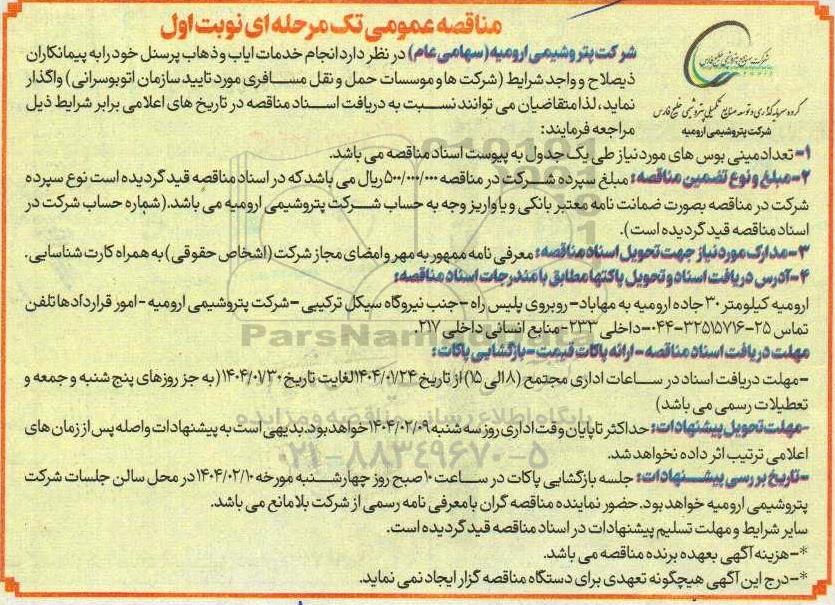 مناقصه عمومی تک مرحله ای نوبت اول
شرکت پتروشیمی ارومیه (سهامی عام) در نظر دارد انجام خدمات ایاب و ذهاب پرسنل خود را به پیمانکاران
ذیصلاح و واجد شرایط (شرکت ها و موسسات حمل و نقل مسافری مورد تایید سازمان اتوبوسرانی) واگذار
نماید، لذا متقاضیان می توانند نسبت به دریافت اسناد مناقصه در تاریخ های اعلامی برابر شرایط ذیل
مراجعه فرمایند:
گروه سرمایه گذاری و توسعه صنایع تکمیلی پتروشیمی خلیج فارس
شرکت پتروشیمی ارومیه
۱- تعداد مینی بوس های مورد نیاز طی یک جدول به پیوست اسناد مناقصه می باشد.
۲- مبلغ و نوع تضمین مناقصه: مبلغ سپرده شرکت در مناقصه ۵۰۰/۰۰۰/۰۰۰ ریال می باشد که در اسناد مناقصه قید گردیده است نوع سپرده
شرکت در مناقصه بصورت ضمانت نامه معتبر بانکی و یا واریز وجه به حساب شرکت پتروشیمی ارومیه می باشد. (شماره حساب شرکت در
اسناد مناقصه قید گردیده است).
۳- مدارک مورد نیاز جهت تحویل اسناد مناقصه: معرفی نامه ممهور به مهر و امضای مجاز شرکت (اشخاص حقوقی) به همراه کارت شناسایی.
۴- آدرس دریافت اسناد و تحویل پاکتها مطابق با مندرجات اسناد مناقصه:
ارومیه کیلومتر ۳۰ جاده ارومیه به مهاباد - روبروی پلیس راه - جنب نیروگاه سیکل ترکیبی - شرکت پتروشیمی ارومیه - امور قراردادها تلفن
تماس ۲۵-۳۲۵۱۵۷۱۶-۰۴۴ - داخلی ۲۳۳ - منابع انسانی داخلی ۲۱۷.
ParsNamadData
مهلت دریافت اسناد مناقصه - ارائه پاکات قیمت - بازگشایی پاکات:
- مهلت دریافت اسناد در ساعات اداری مجتمع (۸ الی ۱۵) از تاریخ ۱۴۰۴/۰۱/۲۴ لغایت تاریخ ۱۴۰۴/۰۱/۳۰ (به جز روزهای پنج شنبه و جمعه و
تعطیلات رسمی می باشد)
پایگاه اطلاع رسانی مناقصه و مزایده
- مهلت تحویل پیشنهادات: حداکثر تا پایان وقت اداری روز سه شنبه ۱۴۰۴/۰۲/۰۹ خواهد بود. بدیهی است به پیشنهادات واصله پس از زمان های
اعلامی ترتیب اثر داده نخواهد شد.
۰۲۱-۸۸۳۴۹۶۷۰-۵
- تاریخ بررسی پیشنهادات: جلسه بازگشایی پاکات در ساعت ۱۰ صبح روز چهارشنبه مورخه ۱۴۰۴/۰۲/۱۰ در محل سالن جلسات شرکت
پتروشیمی ارومیه خواهد بود. حضور نماینده مناقصه گران با معرفی نامه رسمی از شرکت بلامانع می باشد.
سایر شرایط و مهلت تسلیم پیشنهادات در اسناد مناقصه قید گردیده است.
*- هزینه آگهی بعهده برنده مناقصه می باشد.
*- درج این آگهی هیچگونه تعهدی برای دستگاه مناقصه گزار ایجاد نمی نماید.